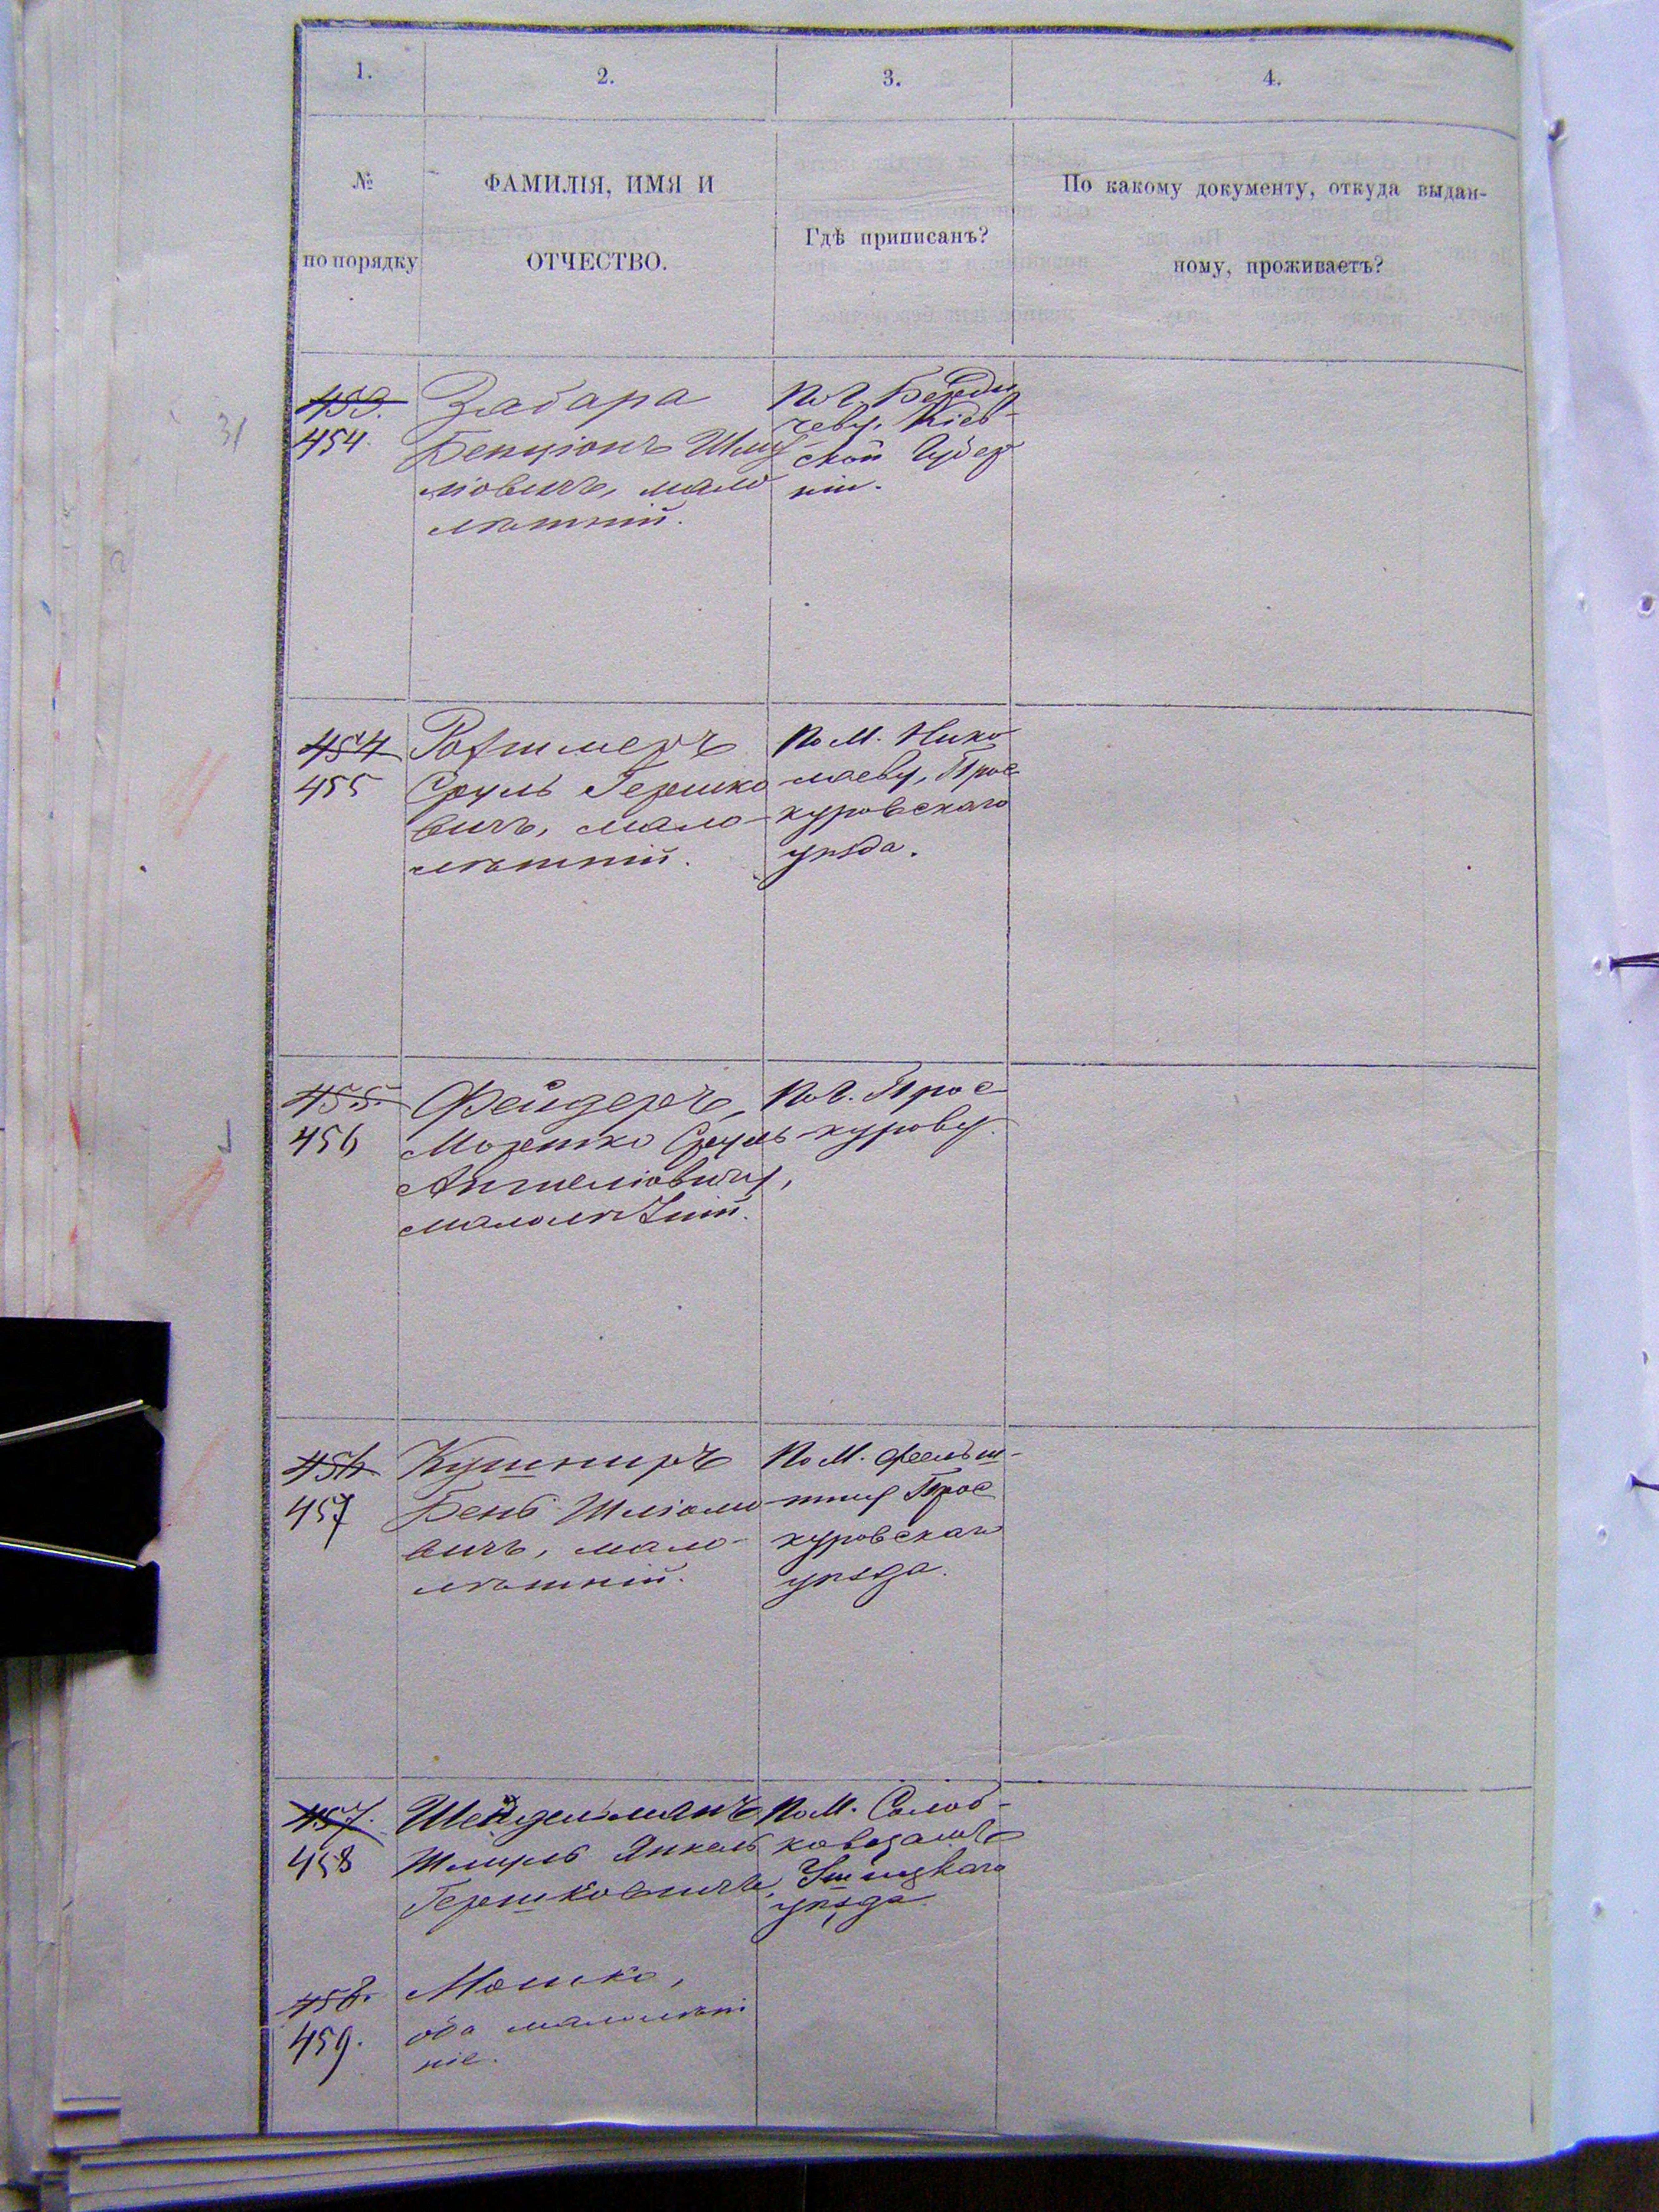 1.
2.
3.
4.
№
по порядку
ФАМИЛІЯ, ИМЯ И
ОТЧЕСТВО.
Гдѣ приписанъ?
По какому документу, откуда выдан-
ному, проживаетъ?
31
453.
454
Забара
Бенціонъ Шму
ліовичъ, мало
лѣтній.
По г. Берди
чеву, Кіев-
ской Губер
ніи.
454
455
Ротшмеръ
Сруль Гершко
вичъ, мало-
лѣтній.
По м. Нико
лаеву, Прос
куровскаго
уѣзда.
455.
456
Фейдеръ,
Морешко Сруль
Аншеліовичъ,
малолѣтній.
По г. Прос
курову.
456
457
Кушниръ
Бень Шліомо
вичъ, мало-
лѣтній.
По м. Фельш-
тину Прос
куровскаго
уѣзда.
457.
458
Шейдельманъ
Шмуль Янкель
Гершковичъ,
По м. Солоб-
ковцамъ
Ушицкаго
уѣзда.
458.
459.
Мошко,
оба малолѣт
ніе.